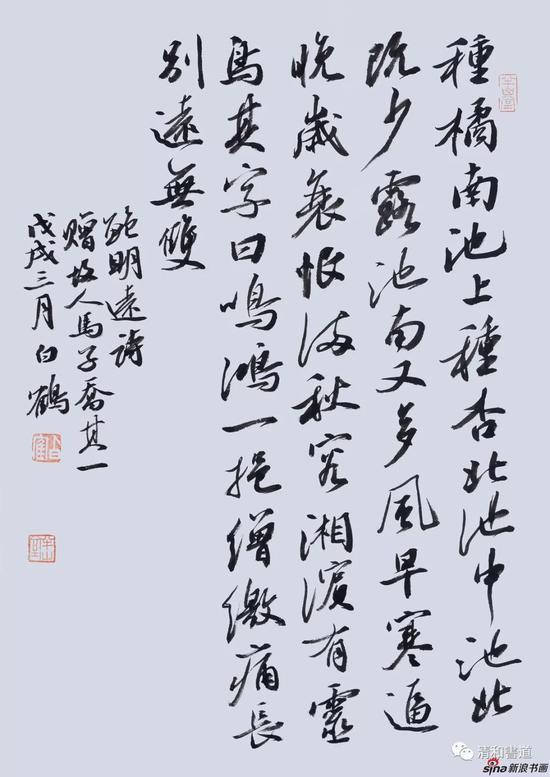 種橘南池上種杏北池中池北
既少露池南又多風早寒逼
晚歲衰恨滿秋容湘濱有靈
鳥其字曰鳴鴻一挹繒繳痛長
別遠無雙
鮑明遠詩
赠故人馬子喬其一
戊戌三月白鶴
清和書道
sina新浪书画